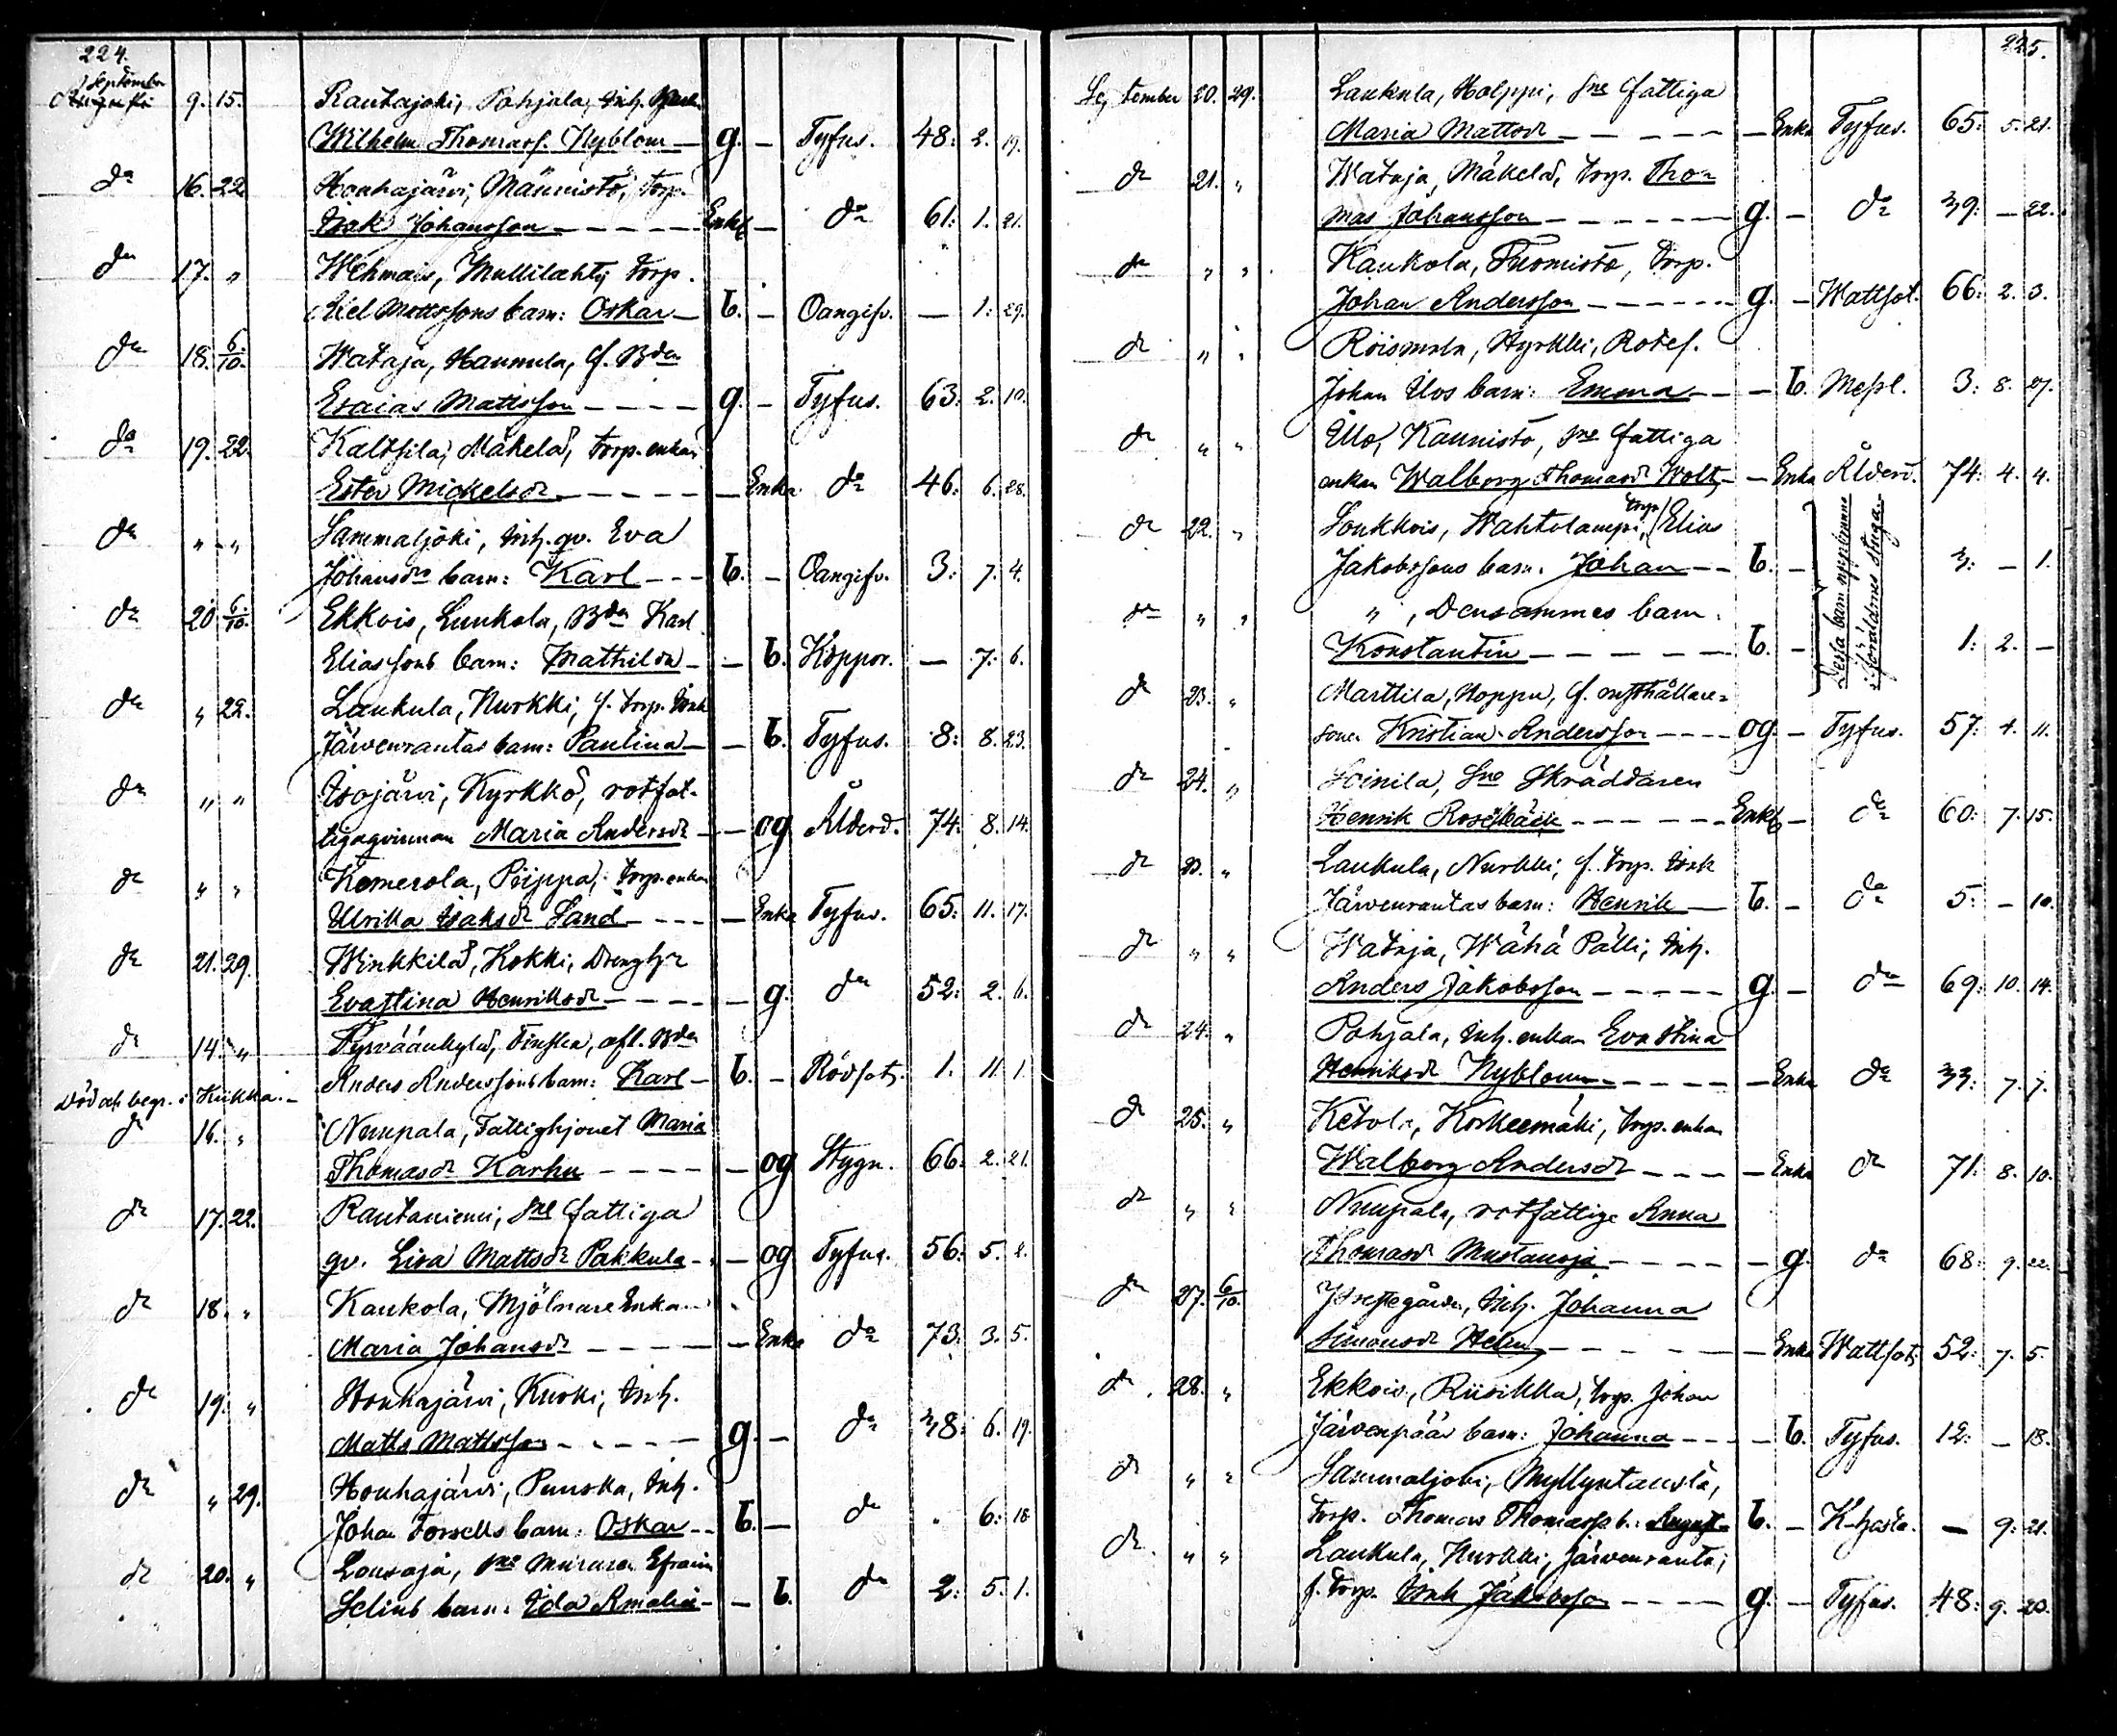 224.
September
9. 15. Rautajoki, Pohjala, Inh. Karl
Wilhelm Thomass. Nyblom — g. — Tyfus. 48: 2. 19.
do 16. 22 Houhajärvi, Männistö, torp.
Isak Johansson - - - - - Enkl — do 61: 1. 21.
do 17. „ Wehmais, Myllilahti torp.
Axel Mattssons barn: Oskar — b. — Oangifv. — 1: 29.
do 18. 6/10. Wataja, Hannula, f. Bdn
Esaias Mattsson - - - - g. — Tyfus. 63: 2. 10.
do 19. 22. Kaltsila, Mäkelä, torp.enkan
Ester Mickelsdr - - - - - — Enka do 46: 6. 28.
do „ - „ Sammaljoki, Inh. qv. Eva
Johansdrs barn: Karl - - - b. — Oangifv. 3: 7. 4.
do 20. 6/10. Ekkois, Luukola, Bdn Karl
Eliassons barn: Mathilda - — b. Koppor. — 7: 6.
do „ 22. Laukula, Nurkki, f. torp. Isak
Järvenrantas barn: Paulina - — b. Tyfus. 8: 8. 23.
do „ „ Isojärvi, Kyrkkö, rotfat-
tigaqvinnan Maria Andersdr — og Ålderd. 74: 8. 14.
do „ „ Kemerola, Piippa, torp.enkan
Ulrika Isaksdr Sand - - - - — Enka Tyfus. 65: 11. 17.
do 21. 29. Winkkilä, Kokki, Drengh
Evastina Henriksdr - - - - — g. do 52: 2. 6.
do 14. „ Tyrväänkylä, Finskn, afl. Bdn
Anders Anderssons barn: Karl - b. — Rödsot. 1. 11. 1.
Död och begr. i Kiikka. -
do 16. „ Nuupala, Fattighjonet Maria
Thomasdr Karhu - - - - — og Stygn. 66: 2. 21.
do 17. 22. Rautaniemi, Sne fattiga
qv. Lisa Mattsdr Pakkula - - — og Tyfus. 56: 5. 2.
do 18. „ Kaukola, Mjölnare Enkan
Maria Johansdr - - - - - — Enka do 73: 3. 5.
do 19. „ Houhajärvi, Kurki, Inh.
Matts Mattsson - - - - - g. — do 48: 6. 19.
do „ 29. Houhajärvi, Punska, Inh.
Johan Forsells barn: Oskar - - b. — do „ 6: 18
do 20. „ Lousaja, Sne Murara Efraim
Selins barn: Ida Amalia - — b. do 2: 5. 1.
225.
September 20. 29. Laukula, Holppi, Sne fattiga
Maria Mattsdr - - - - - — Enka Tyfus. 65: 5. 21.
do 21. „ Wataja, Mäkelä, torp. Tho=
mas Johansson - - - - - - g. — do 39: — 22.
do „ „ Kaukola, Thomistö, torp.
Johan Andersson - - - - - g. — Wattsot. 66: 2. 3.
do „ „ Roismala, Hyrkki, Rotef.
Johan Ulos barn: Emma - - — b. Messl. 3: 8. 27.
do „ „ Ulo, Kaunisto, Sne fattiga
enkan Walborg Thomasdr Wolt - — Enka Ålderd. 74: 4. 4.
do 22. „ Soukkois, Wahtolampi, torp. Elias
Jakobssons barn. Johan - - b. — 3: — 1.
do „ „ „ , Densammes barn.
Konstantin - - - - - - b. — 1: 2. —
Dessa barn uppbrunno
i föräldrns stuga.
do 23. „ Marttila, Hoppu, f. rusthållare=
sonen Kristian Andersson - - - - og — Tyfus. 57: 4. 11.
do 24. „ Soinila, Sne Skräddaren
Henrik Rosenbäck - - - - - - Enkl — do 60: 7. 15.
do 23. „ Laukula, Nurkki, f. torp. Isak
Järvenrantas barn: Henrik - b. — do 5: — 10.
do „ „ Wataja, Wähä Pälli, Inh.
Anders Jakobsson - - - - - g. — do 69: 10. 14.
do 24. „ Pohjala, Inh. enkan Eva Stina
Henriksdr Nyblom - - - - - — Enka do 33: 7. 7.
do 25. „ Ketola, Korkeemäki, torp.enkan
Walborg Andersdr - - - - — Enka do 71: 8. 10.
do „ „ Nuupala, rotfattige Anna
Thomasdr Mustanoja - - - - — g. do 68: 9. 22.
do 27. 6/10. Prestegården, Inh. Johanna
Simonsdr Helen - - - - - — Enka Wattsot. 52: 7. 5.
do 28. „ Ekkois, Riisikka, torp. Johan
Järvenpääs barn: Johanna - - - — b. Tyfus. 12: — 18.
do „ „ Sammaljoki, Myllyntausta,
torp. Thomas Thomass. b.: August - b. — K-hosta. — 9: 21.
do „ „ Laukula, Nurkki, Järvenranta,
f. torp. Isak Jakobsson - - - - g. — Tyfus. 48: 9. 20.